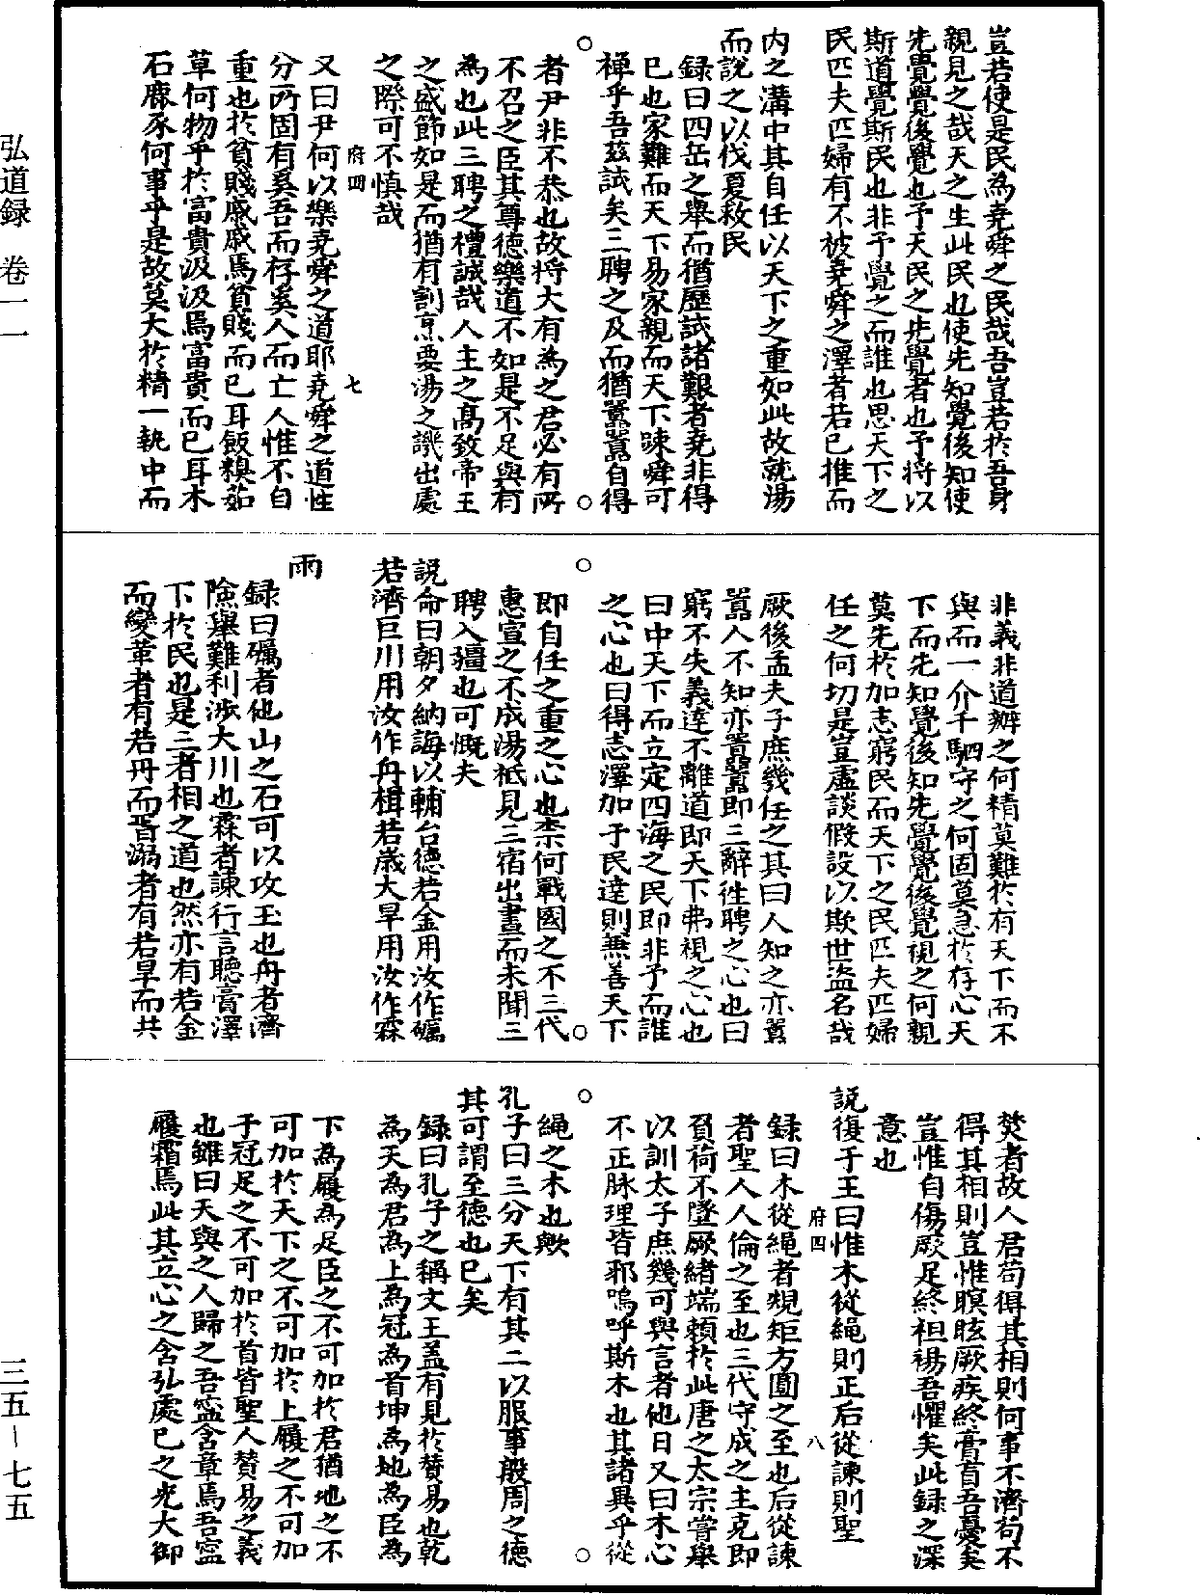 弘道録　卷一一
三五—七五
豈若使是民為堯舜之民哉吾豈若於吾身
親見之哉天之生此民也使先知覺後知使
先覺覺後覺也予天民之先覺者也予將以
斯道覺斯民也非予覺之而誰也思天下之
民匹夫匹婦有不被堯舜之澤者若已推而
内之溝中其自任以天下之重如此故就湯
而説之以伐夏救民
録曰四岳之舉而猶歷試諸艱者堯非得
已也家難而天下易家親而天下踈舜可
禅乎吾茲試矣三聘之及而猶囂囂自得
者尹非不恭也故將大有為之君必有所
不召之臣其尊德樂道不如是不足與有
為也此三聘之禮誠哉人主之髙致帝王
之盛節如是而猶有割烹要湯之譏出處
之際可不慎哉
府四　七
又曰尹何以樂堯舜之道耶堯舜之道性
分所固有奚吾而存奚人而亡人惟不自
重也於貧賤戚戚焉貧賤而已耳飯糗茹
草何物乎於富貴汲汲焉富貴而已耳木
石鹿豕何事乎是故莫大於精一執中而
非義非道辦之何精莫難於有天下而不
與而一介千駟守之何固莫急於存心天
下而先知覺後知先覺覺後覺視之何親
莫先於加志窮民而天下之民匹夫匹婦
任之何切是豈虛談假設以欺世盗名哉
厥後孟夫子庶幾任之其曰人知之亦囂
囂人不知亦囂囂即三辭徃聘之心也曰
窮不失義達不離道即天下弗視之心也
曰中天下而立定四海之民即非予而誰
之心也曰得志澤加于民達則無善天下
即自任之重之心也柰何戰國之不三代
惠宣之不成湯祗見三宿出晝而未聞三
聘入疆也可慨夫
説命曰朝夕納誨以輔台德若金用汝作礪
若濟巨川用汝作舟楫若歲大旱用汝作霖
雨
録曰礪者他山之石可以攻玉也舟者濟
險舉難利涉大川也霖者諫行言聽膏澤
下於民也是三者相之道也然亦有若金
而變革者有若舟而胥溺者有若旱而共
焚者故人君苟得其相則何事不濟苟不
得其相則豈惟瞑眩厥疾終膏肓吾憂矣
豈惟自傷厥足終袒裼吾懼矣此録之深
意也
説復于王曰惟木從繩則正后從諫則聖
府四　八
録曰木從繩者規矩方圓之至也后從諫
者聖人人倫之至也三代守成之主克即
負荷不墜厥緒端頼於此唐之太宗嘗舉
以訓太子庶幾可與言者他日又曰木心
不正脉理皆邪嗚呼斯木也其諸異乎從
繩之木也歟
孔子曰三分天下有其二以服事殷周之德
其可謂至德也已矣
録曰孔子之稱文王盖有見於賛易也乾
為天為君為上為冠為首坤為地為臣為
下為履為足臣之不可加於君猶地之不
可加於天下之不可加於上履之不可加
于冠足之不可加於首皆聖人賛易之義
也雖曰天與之人歸之吾寍含章焉吾寍
履霜焉此其立心之含弘處已之光大御